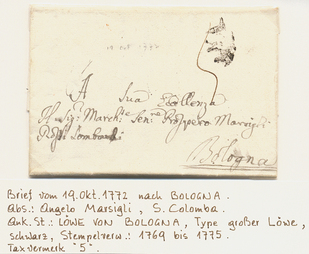 A Sua Eccellenza
Il Sig: March:se Sen:re Prospero Marsigli
Bologna
Brief vom 19.Okt.1772 nach BOLOGNA.
Abs.: Angelo Marsigli, S. Colomba.
Ank.St.: LÖWE VON BOLOGNA, Type großer Löwe,
schwarz, Stempelverw.: 1769 bis 1775.
Taxvermerk "5".